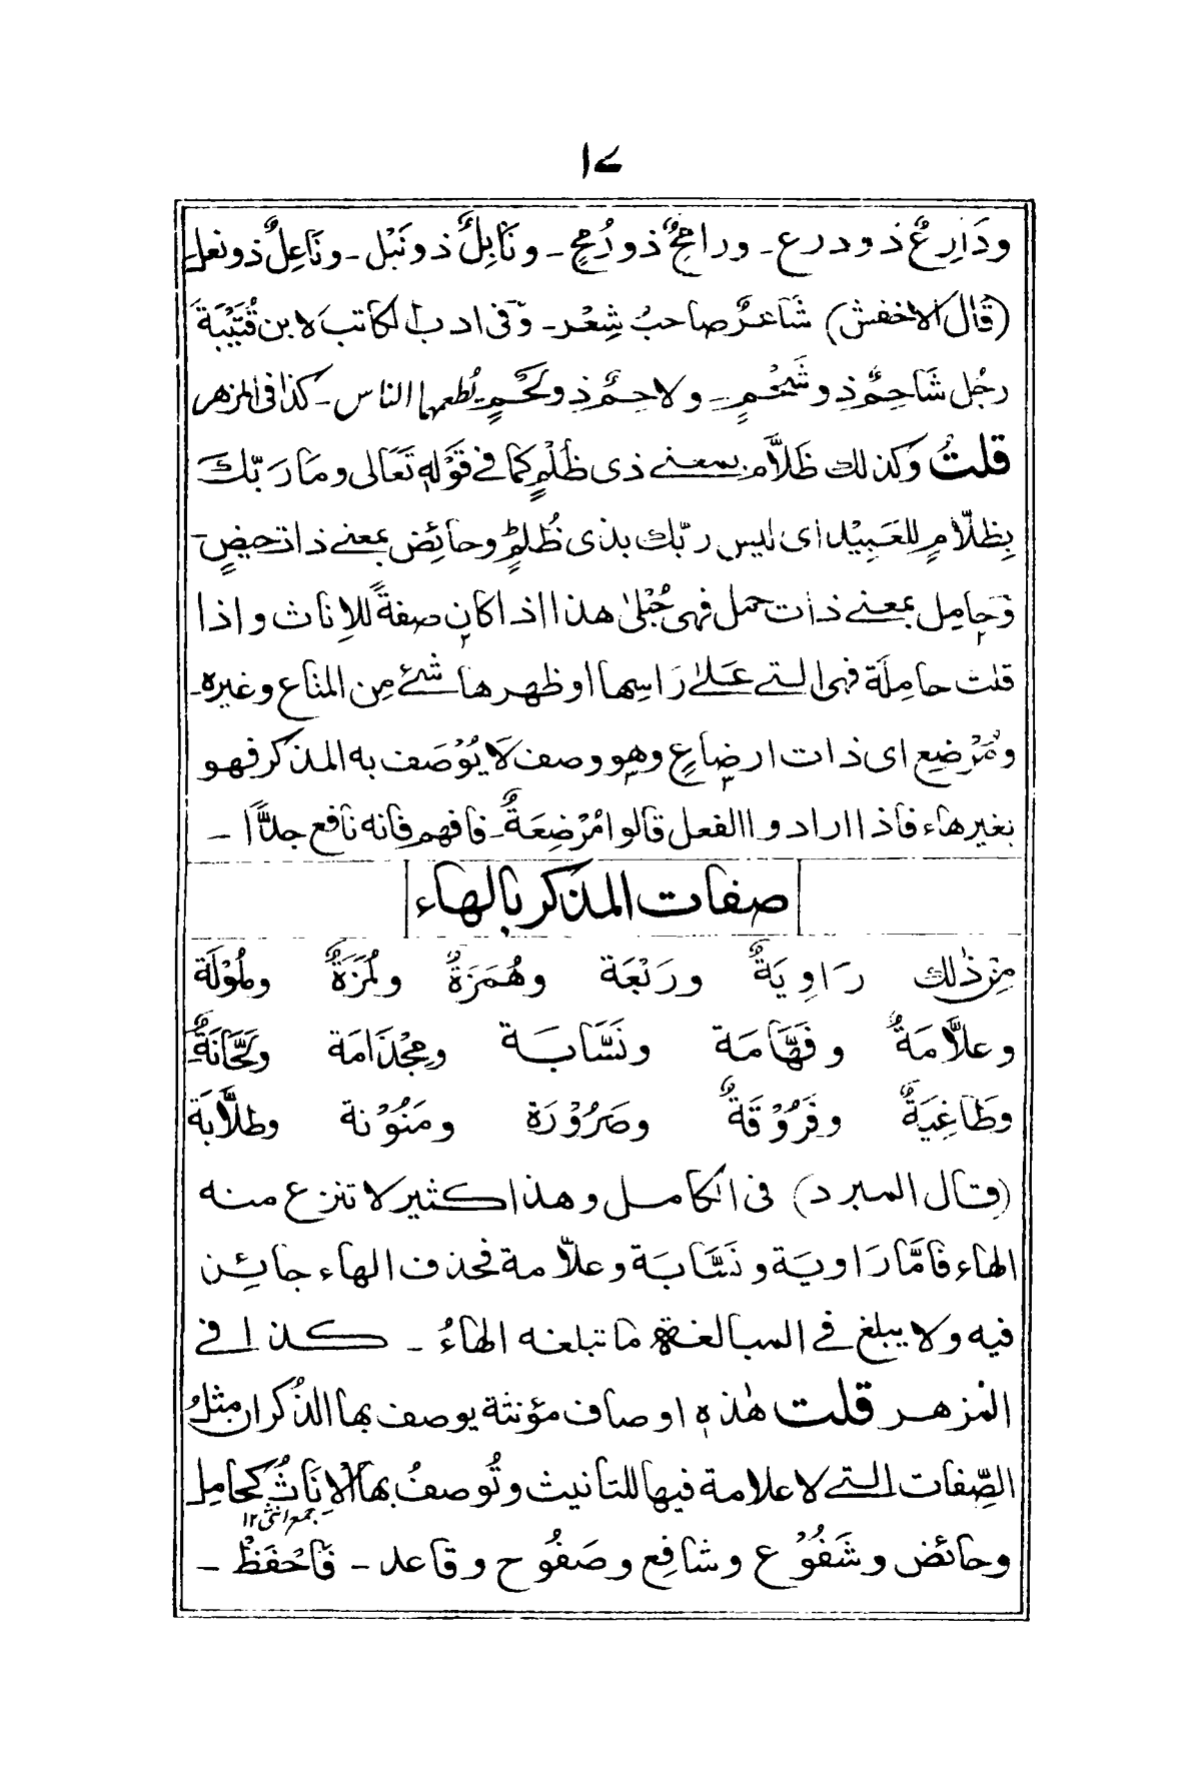 ١٧
ودَارِعٌ ذو درع - ورامِحٌ ذو رُمحٍ - ونَابِلٌ ذو نَبْل - ونَاعِلٌ ذو نعل
(قال الاخفش) شَاعرٌ صاحبُ شِعْر - وفى ادب الكاتب لابن قُتَيْبَةَ
رجُل شَاحِمٌ ذو شَحْمٍ - ولاحِمٌ ذو لَحْمٍ يُطعمهما الناس - كذا فى المزهر
قلتُ وكذلك ظَلاَّم بمعنے ذى ظُلْمٍ كما فے قَوْلِهٖ تَعَالى ومَا رَبّكَ
بِظلّامٍ للعَبِيْد اى ليس ربّك بذى ظُلمٍ وحائِض بمعنے ذات حيضٍ
وحَامِل بمعنے ذات حمل فهى حُبْلىٰ هذا اذا كان صفةً للاِناث واذا
قلت حامِلَة فهى التے عَلىٰ رَاسِها او ظهرها شئے مِن المتاع وغيره -
ومُرْضِع اى ذات ارضاعٍ وهو وصف لَا يُوْصَف به المذكر فهو
بغيرهاء فاذا ارادوا الفعل قالوا مُرْضِعَةٌ - فافهم فانه نافع جدًّا -
صفات المذكر بالهاء
مِنْ ذٰلك رَاوِيَةٌ ورَبْعَة وهُمَزَةٌ ولُمَزَةٌ ومَلُوْلَة
وعلَّامَةٌ وفَهَّامَة ونَسَّابَة ومِجْذَامَة ولَحَّانَةٌ
وطَاغِيَةٌ وفَرُوْقَةٌ وصَرُوْرَة ومَنُوْنة وطلَّابَة
(قال المبرد) فى الكامل وهذا كثير لا تنزع منه
الهاء فامَّا رَاويَة ونَسَّابَة وعلاّمة فحذف الهاء جائِز
فيه ولا يبلغ فے المبالغة ما تبلغه الهاءُ - كذا فے
المزهر قلت هٰذهٖ اوصاف مؤنثة يوصف بها الذُكران مثلُ
الصِّفات التے لا علامة فيها للتانيث وتُوصفُ بها الاِنَاثُ كحامِل
جمع انثى ١٢
وحائض وشَفُوْع وشافِع وصَفُوح وقاعد - فَاحْفَظْ -